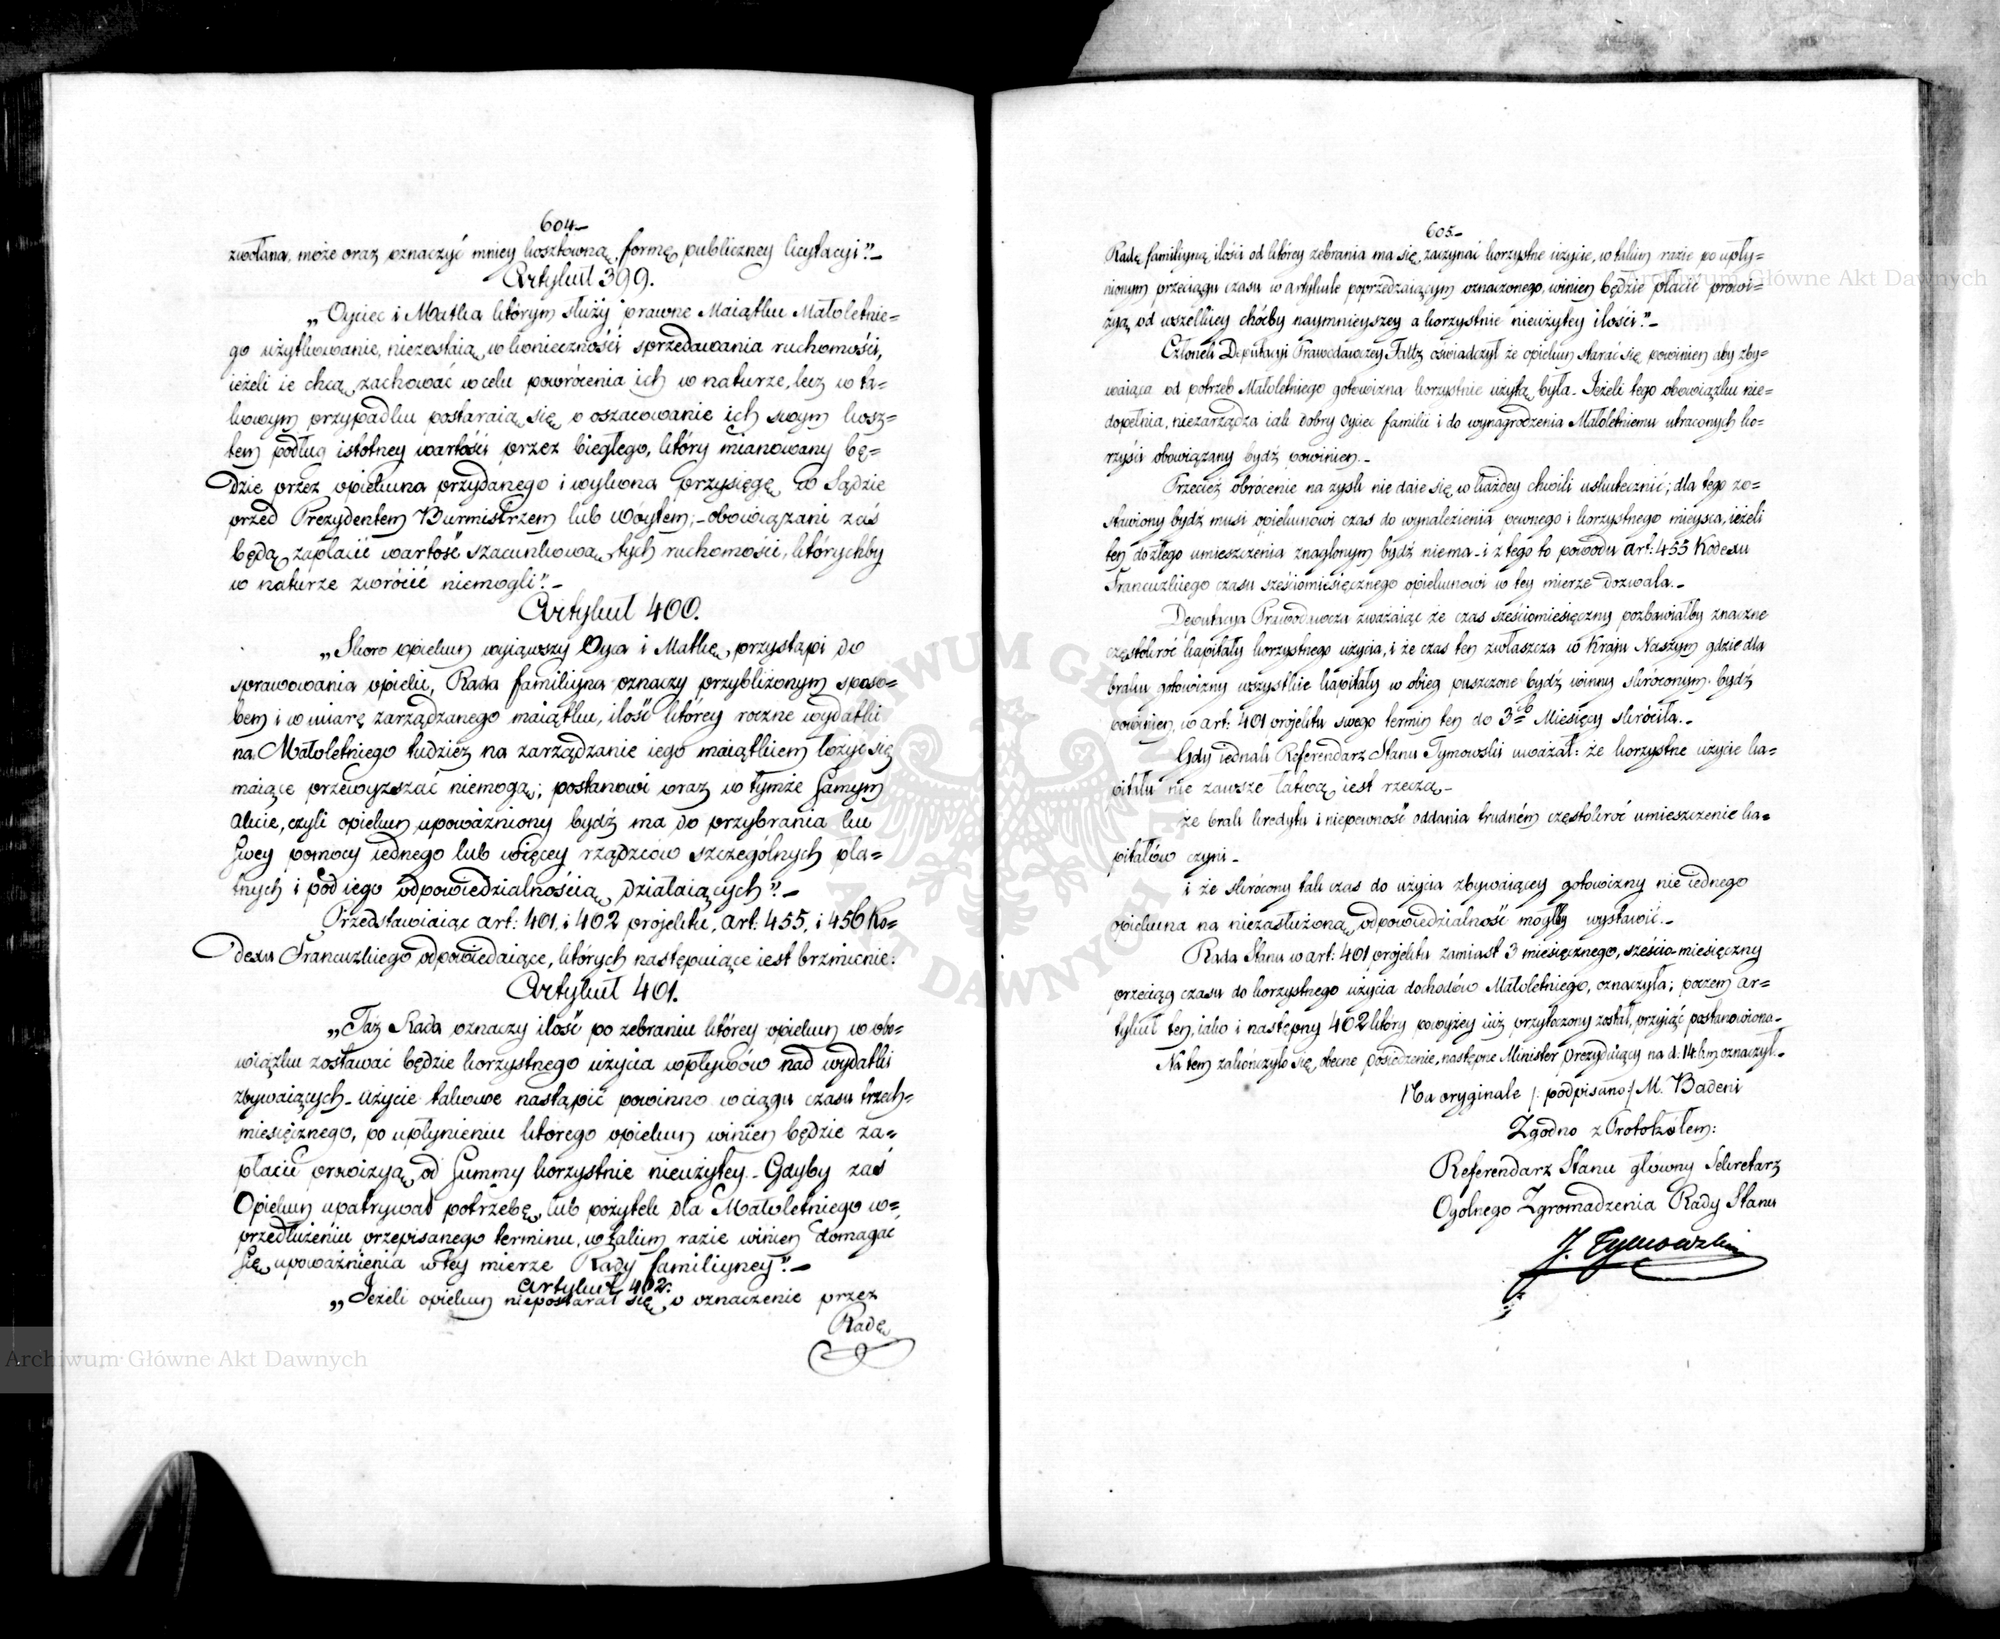 604.
zwołana, może oraz oznaczyć mniey kosztowną formę publiczney licytacyi".
Artykuł 399.
„Oyciec i Matka którym służy prawne Maiątku Małoletnie=
go użytkowanie, niezostaią w konieczności sprzedawania ruchomości,
ieżeli ie chcą zachować w celu powrócenia ich w naturze, lecz w ta=
kowym przypadku postaraią się o oszacowanie ich swym kosz=
tem podług istotney wartości przez biegłego, który mianowany bę=
dzie przez opiekuna przydanego i wykona przysięgę w Sądzie
przed Prezydentem Burmistrzem lub Wóytem; - obowiązani zaś
będą zapłacić wartość szacunkową tych ruchomości, którychby
w naturze zwrócić niemogli".
Artykuł 400.
„Skoro opiekun wyiąwszy Oyca i Matkę, przystąpi do
sprawowania opieki, Rada familiyna oznaczy przybliżonym sposo=
bem i w miarę zarządzanego maiątku, ilość którey roczne wydatki
na Małoletniego tudzież na zarządzanie iego maiątkiem łożyć się
maiące przewyższać niemogą; postanowi oraz w tymże samym
akcie, czyli opiekun upoważniony bydź ma do przybrania ku
swey pomocy iednego lub więcey rządzców szczególnych pła=
tnych i pod iego odpowiedzialnością działaiących".
Przedstawiaiąc art: 401, i 402 projektu, art: 455, i 456 Ko=
dexu Francuzkiego odpowiedaiące, których następuiące iest brzmienie:
Artykuł 401.
„Taż Rada oznaczy ilość po zebraniu którey opiekun w obo=
wiązku zostawać będzie korzystnego użycia wpływów nad wydatki
zbywaiących. użycie takowe nastąpić powinno w ciągu czasu trzech=
miesięcznego, po upłynieniu którego opiekun winien będzie za=
płacić prowizyą od summy korzystnie nieużytey. Gdyby zaś
Opiekun upatrywał potrzebę, lub pożytek dla Małoletniego w=
przedłużeniu przepisanego terminu, w takim razie winien domagać
się upoważnienia w tey mierze Rady familiyney".
Artykuł 402.
„Jeżeli opiekun niepostarał się o oznaczenie przez
Radę
605.
Radę familiyną ilości od którey zebrania ma się zaczynać korzystne użycie, w takim razie po upły=
nionym przeciągu czasu w artykule poprzedzaiącym oznaczonego, winien będzie płacić prowi=
zyą od wszelkiey choćby naymnieyszey a korzystnie nieużytey ilości".
Członek Deputacyi Prawodawczey Faltz oświadczył że opiekun starać się powinien aby zby=
waiąca od potrzeb Małoletniego gotowizna korzystnie użytą była. Jeżeli tego obowiązku nie=
dopełnia, niezarządza iak dobry Oyciec familii i do wynagrodzenia Małoletniemu utraconych ko=
rzyści obowiązany bydź powinien.
Przecież obrócenie na zysk nie daie się w każdey chwili uskutecznić; dla tego zo=
stawiony bydź musi opiekunowi czas do wynalezienia pewnego i korzystnego mieysca, ieżeli
ten do złego umieszczenia znaglonym bydź niema. i z tego to powodu art: 455 Kodexu
Francuzkiego czasu sześciomiesięcznego opiekunowi w tey mierze dozwala.
Deputacya Prawodawcza zważaiąc że czas sześciomiesięczny pozbawiałby znaczne
częstokroć kapitały korzystnego użycia, i że czas ten zwłaszcza w Kraju Naszym gdzie dla
braku gotowizny wszystkie kapitały w obieg puszczone bydź winny skróconym bydź
powinien, w art: 401 projektu swego termin ten do 3ch Miesięcy skróciła.
Gdy iednak Referendarz Stanu Tymowski uważał: że korzystne użycie ka=
pitału nie zawsze łatwą iest rzeczą.
że brak kredytu i niepewność oddania trudném częstokroć umieszczenie ka=
pitałów czyni.
i że skrócony tak czas do użycia zbywaiącey gotowizny nie iednego
opiekuna na niezasłużoną odpowiedzialność mógłby wystawić.
Rada Stanu w art: 401 projektu zamiast 3 miesięcznego, sześcio-miesięczny
przeciąg czasu do korzystnego użycia dochodów Małoletniego, oznaczyła; poczem ar=
tykuł ten, iako i następny 402 który powyżey iuż przytoczony został, przyiąć postanowiono.
Na tem zakończyło się obecne posiedzenie, następne Minister Prezyduiący na d: 14 bm oznaczył.
Na oryginale /: podpisano :/ M. Badeni
Zgodno z Protokółem:
Referendarz Stanu główny Sekretarz
Ogolnego Zgromadzenia Rady Stanu
J. Tymowski
Archiwum Główne Akt Dawnych
Archiwum Główne Akt Dawnych
ARCHIWUM GŁÓWNE AKT DAWNYCH